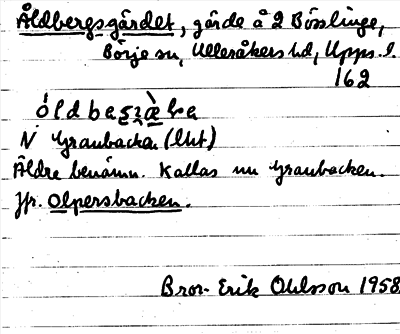 Åldbergsgärdet, gärde å 2 Bösslinge,
Börje sn, Ulleråkers hd, Upps. l.
162
N Granbacka (Utt)
Äldre benämn. Kallas nu Granbacken.
Jfr. Olpersbacken.
Bror-Erik Ohlsson 1958